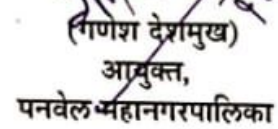 (गणेश देशमुख)
आयुक्त,
पनवेल महानगरपालिका